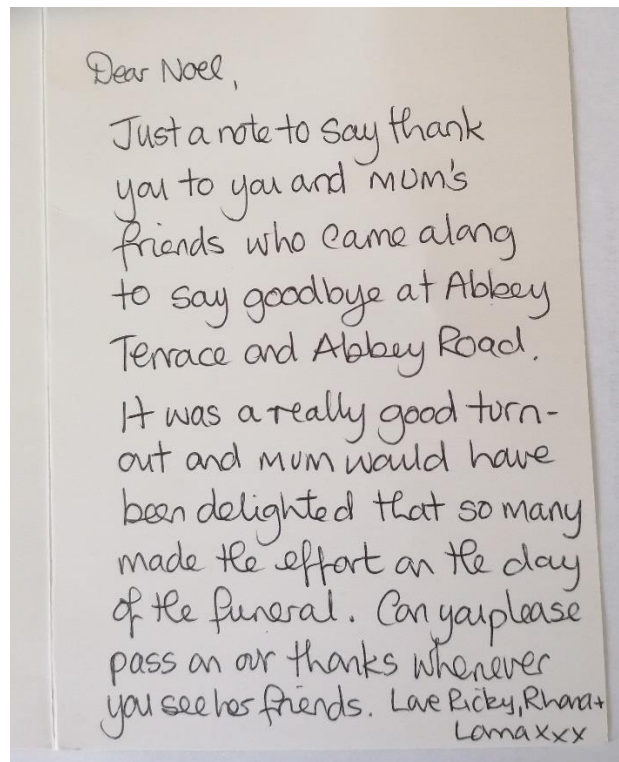 Dear Noel,
Just a note to say thank
you to you and mum's
friends who came along
to say goodbye at Abbey
Terrace and Abbey Road.
It was a really good turn-
out and mum would have
been delighted that so many
made the effort on the day
of the funeral. Can you please
pass on our thanks whenever
you see her friends. Love Ricky, Rhona +
Lorna xxx